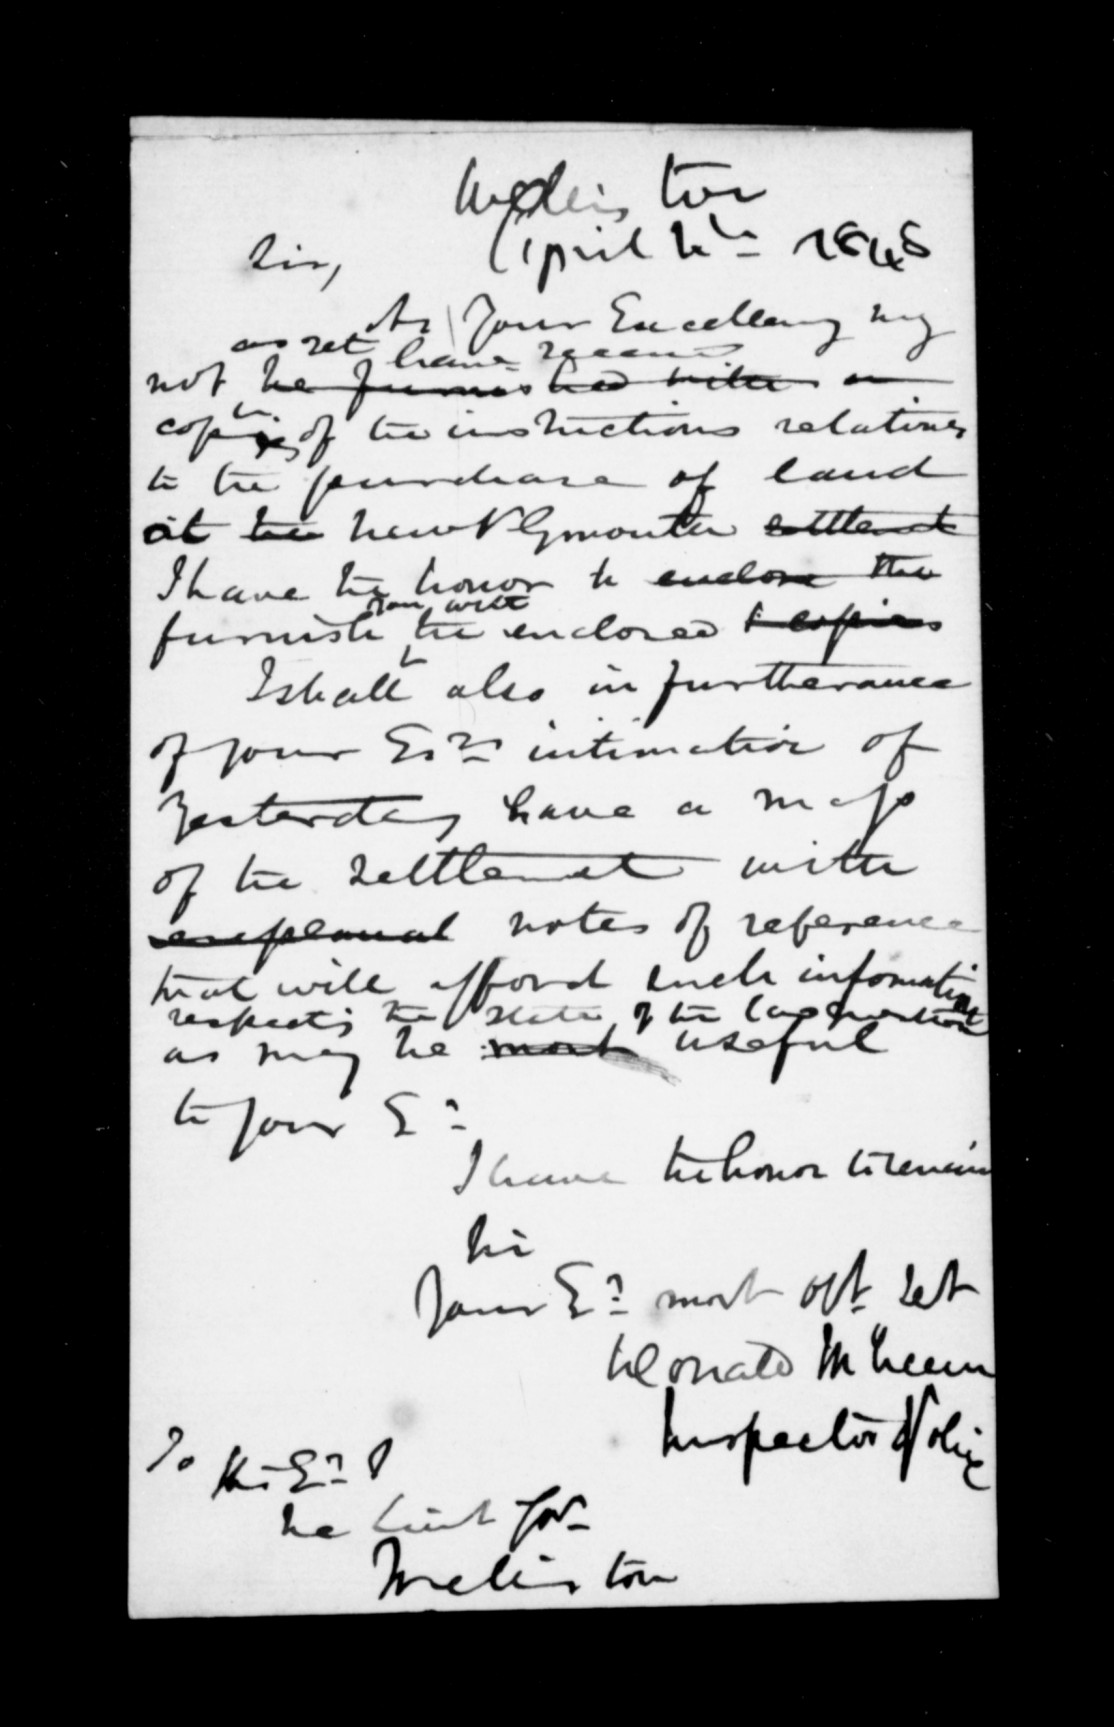 Wellington
April 4th 1848
Sir,
As Your Excellency may
as yet have received
not be furnished with a
copies of the instructions relating
to the purchase of land
at the New Plymouth settlement
I have the honor to enclose the
you with
furnish the enclosed copies
I shall also in furtherance
of your Ex's intimation of
Yesterday have a map
of the settlement with
explanat notes of reference
that will afford such information
respecting the state of the
as may be most useful
to your Ex
I have the honor to remain
Sir
Your Ex most obt Sevt
Donald McLean
Inspector Police
To
His Ex
The Lieut Govr
Wellington